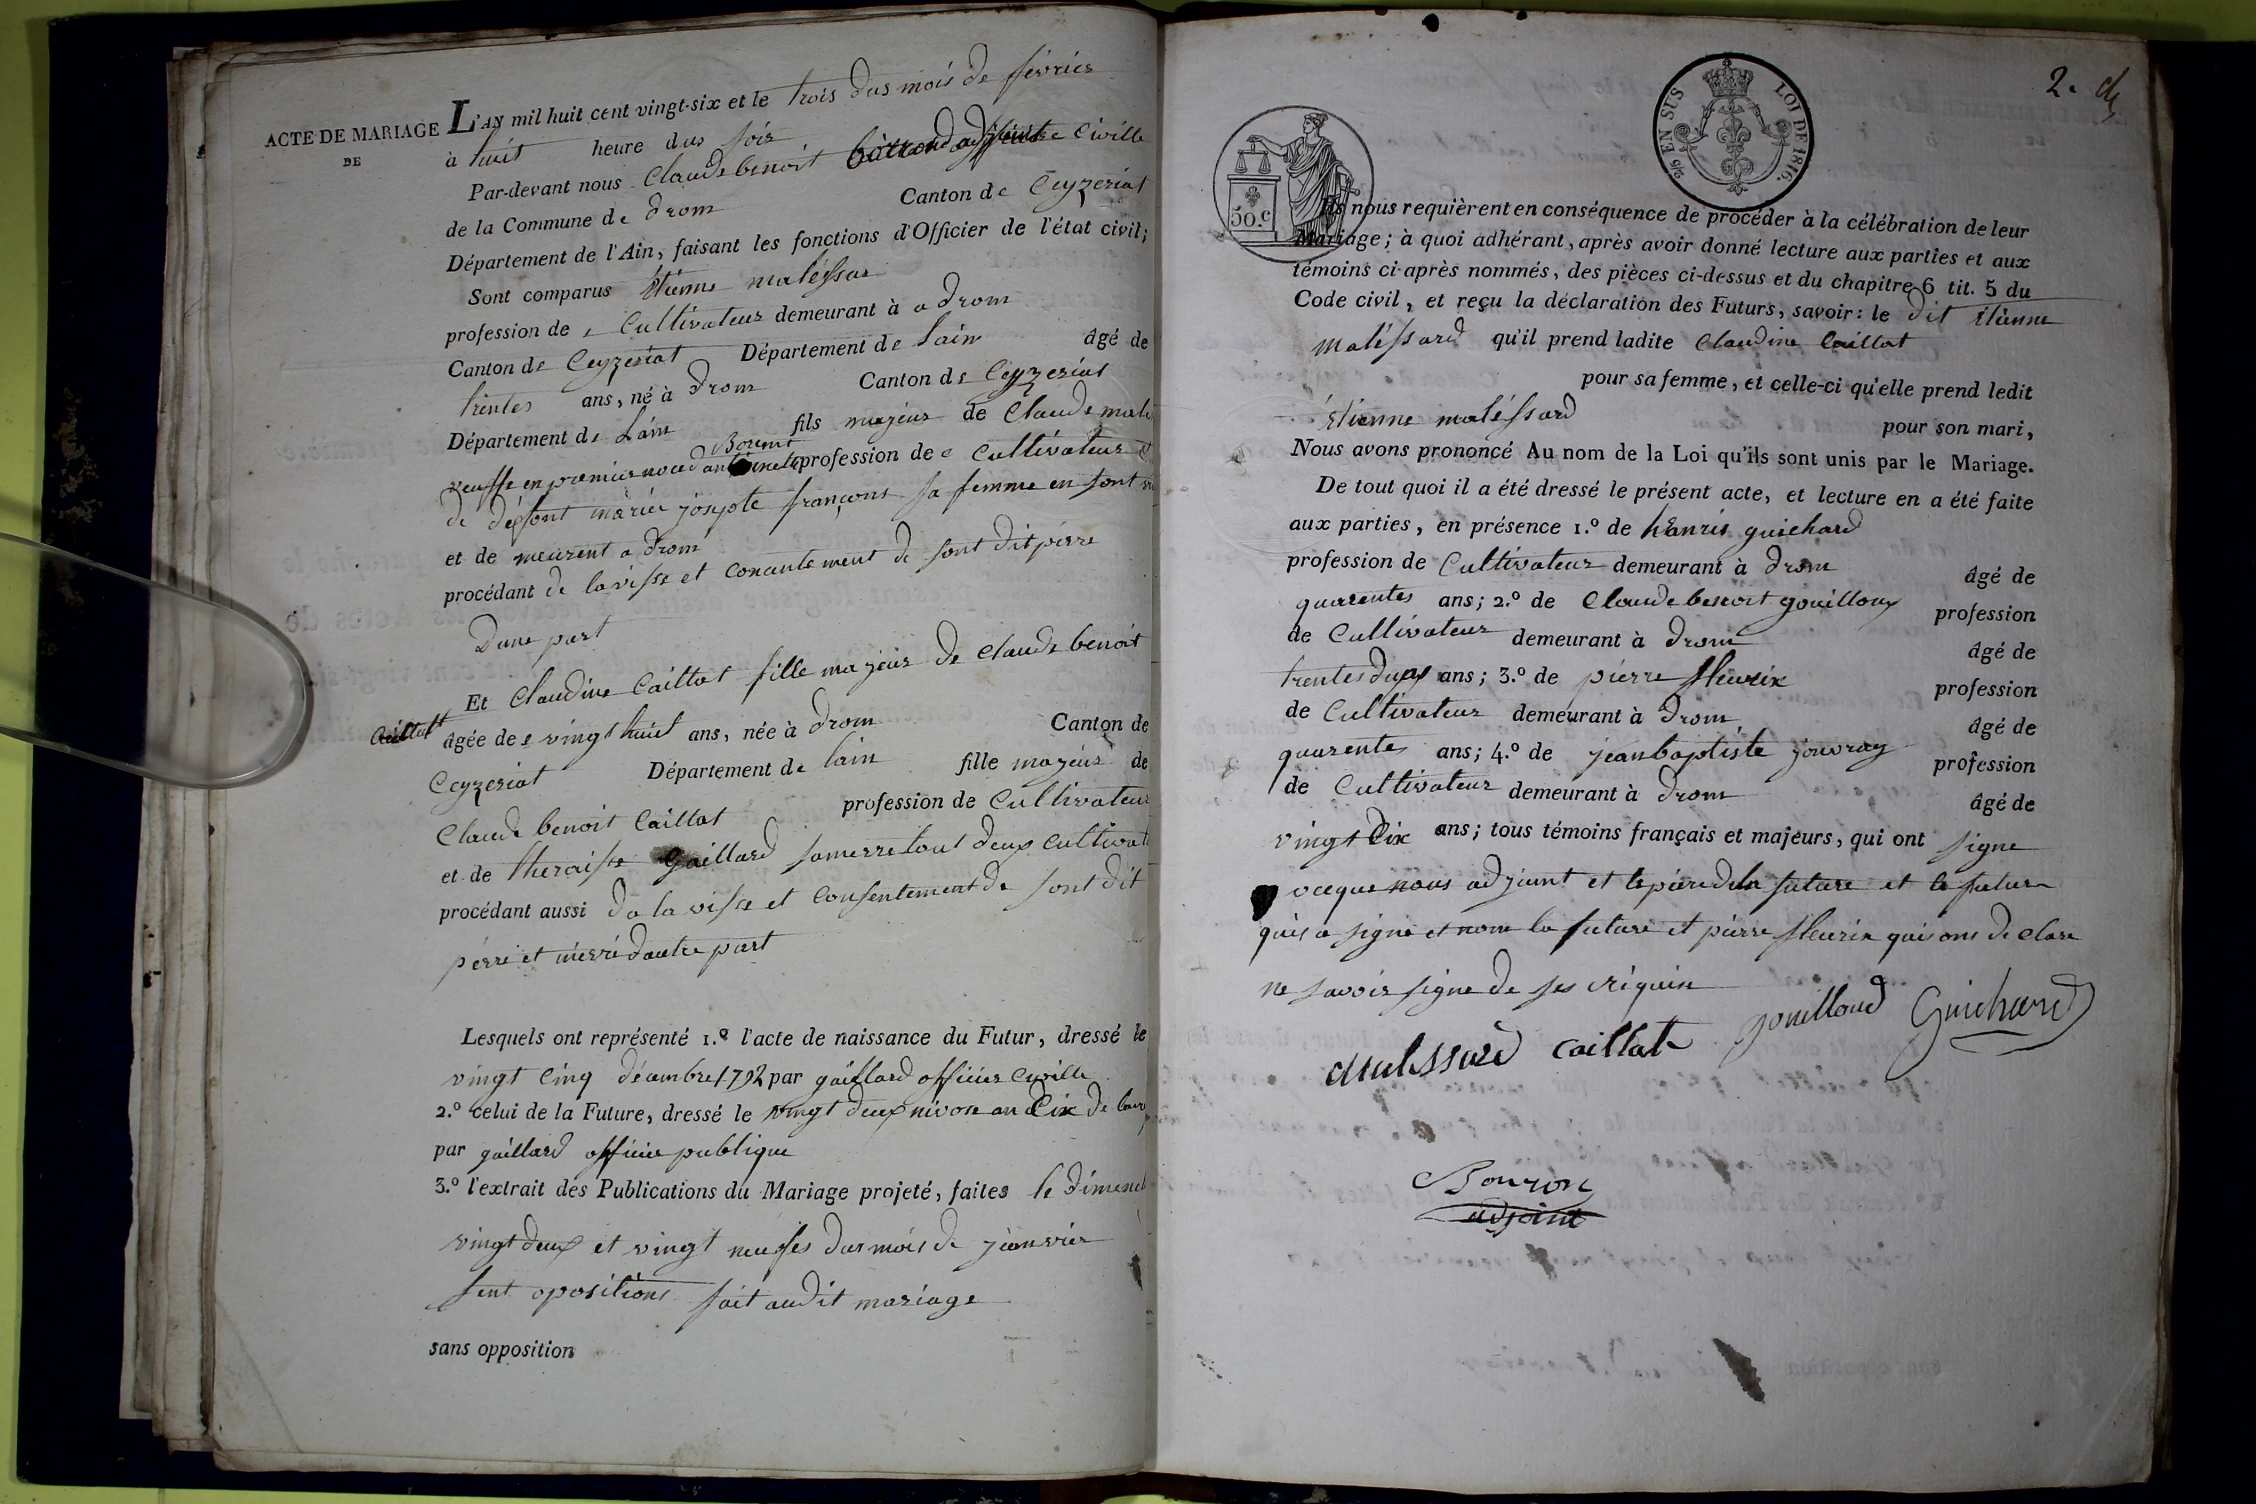 ACTE DE MARIAGE
DE
L'AN mil huit cent vingt-six et le trois dus mois de février
à huit heure dus soir
Par-devant nous Claude benoit adjoint Civille
de la Commune de drom Canton de Ceyzeriat
Département de l'Ain, faisant les fonctions d'Officier de l'état civil;
Sont comparus Etienne maléssar
profession de Cultivateur demeurant à a drom
Canton de Ceyzeriat Département de Lain âgé de
trentes ans, né à drom Canton de Ceyzeriat
Département de Lain fils majeur de Claude male
Bovent
veuffe en premier noced profession de Cultivateur et
de deffont mariee françons sa femme en sont vi
et de meurent a drom
procédant de la visse et conantement de sont dit pérre
Dune part
Et Claudine Caillat fille majeur de Claude benoit
Caillat
âgée de vingt huit ans, née à drom Canton de
Ceyzeriat Département de lain fille majeur de
Claude benoit Caillat profession de Cultivateur
et de theraisse gaillard samerre tout deux cultivat
procédant aussi da la visse et consentement de sont dit
pérre et mérré dautre part
Lesquels ont représenté 1.º l'acte de naissance du Futur, dressé le
vingt Cinq décembre 1792 par gaillard officier Civille
2.º celui de la Future, dressé le vingt deux nivose an dix de
par gaillard officier publique
3.º l'extrait des Publications du Mariage projeté, faites le dimench
vingt deux et vingt neuffes dus mois de jeanvier
sent opositions fait audit mariage
sans opposition
2.
50.c
EN SUS LOI DE 1816.
Ils nous requièrent en conséquence de procéder à la célébration de leur
Mariage; à quoi adhérant, après avoir donné lecture aux parties et aux
témoins ci-après nommés, des pièces ci-dessus et du chapitre 6 tit. 5 du
Code civil, et reçu la déclaration des Futurs, savoir: le dit Etienne
maléssard qu'il prend ladite Claudine Caillat
pour sa femme, et celle-ci qu'elle prend ledit
Etienne maléssard pour son mari,
Nous avons prononcé Au nom de la Loi qu'ils sont unis par le Mariage.
De tout quoi il a été dressé le présent acte, et lecture en a été faite
aux parties, en présence 1.º de hanris guichard
profession de Cultivateur demeurant à drom âgé de
quarentes ans; 2.º de Claude benoit gouilloux profession
de Cultivateur demeurant à drom âgé de
trentes ans; 3.º de pierre fleurix profession
de Cultivateur demeurant à drom âgé de
quarentes ans; 4.º de jeanbaptiste jouvray profession
de Cultivateur demeurant à drom âgé de
vingt dix ans; tous témoins français et majeurs, qui ont signe
vecque nous adjaint et le pére de la future et le futur
quis a signe et nom la future et piérre fleurix quis ons de clare
ne savoir signe de ses
malessard Caillat gouilloud Guichard
Bouron
adjoint